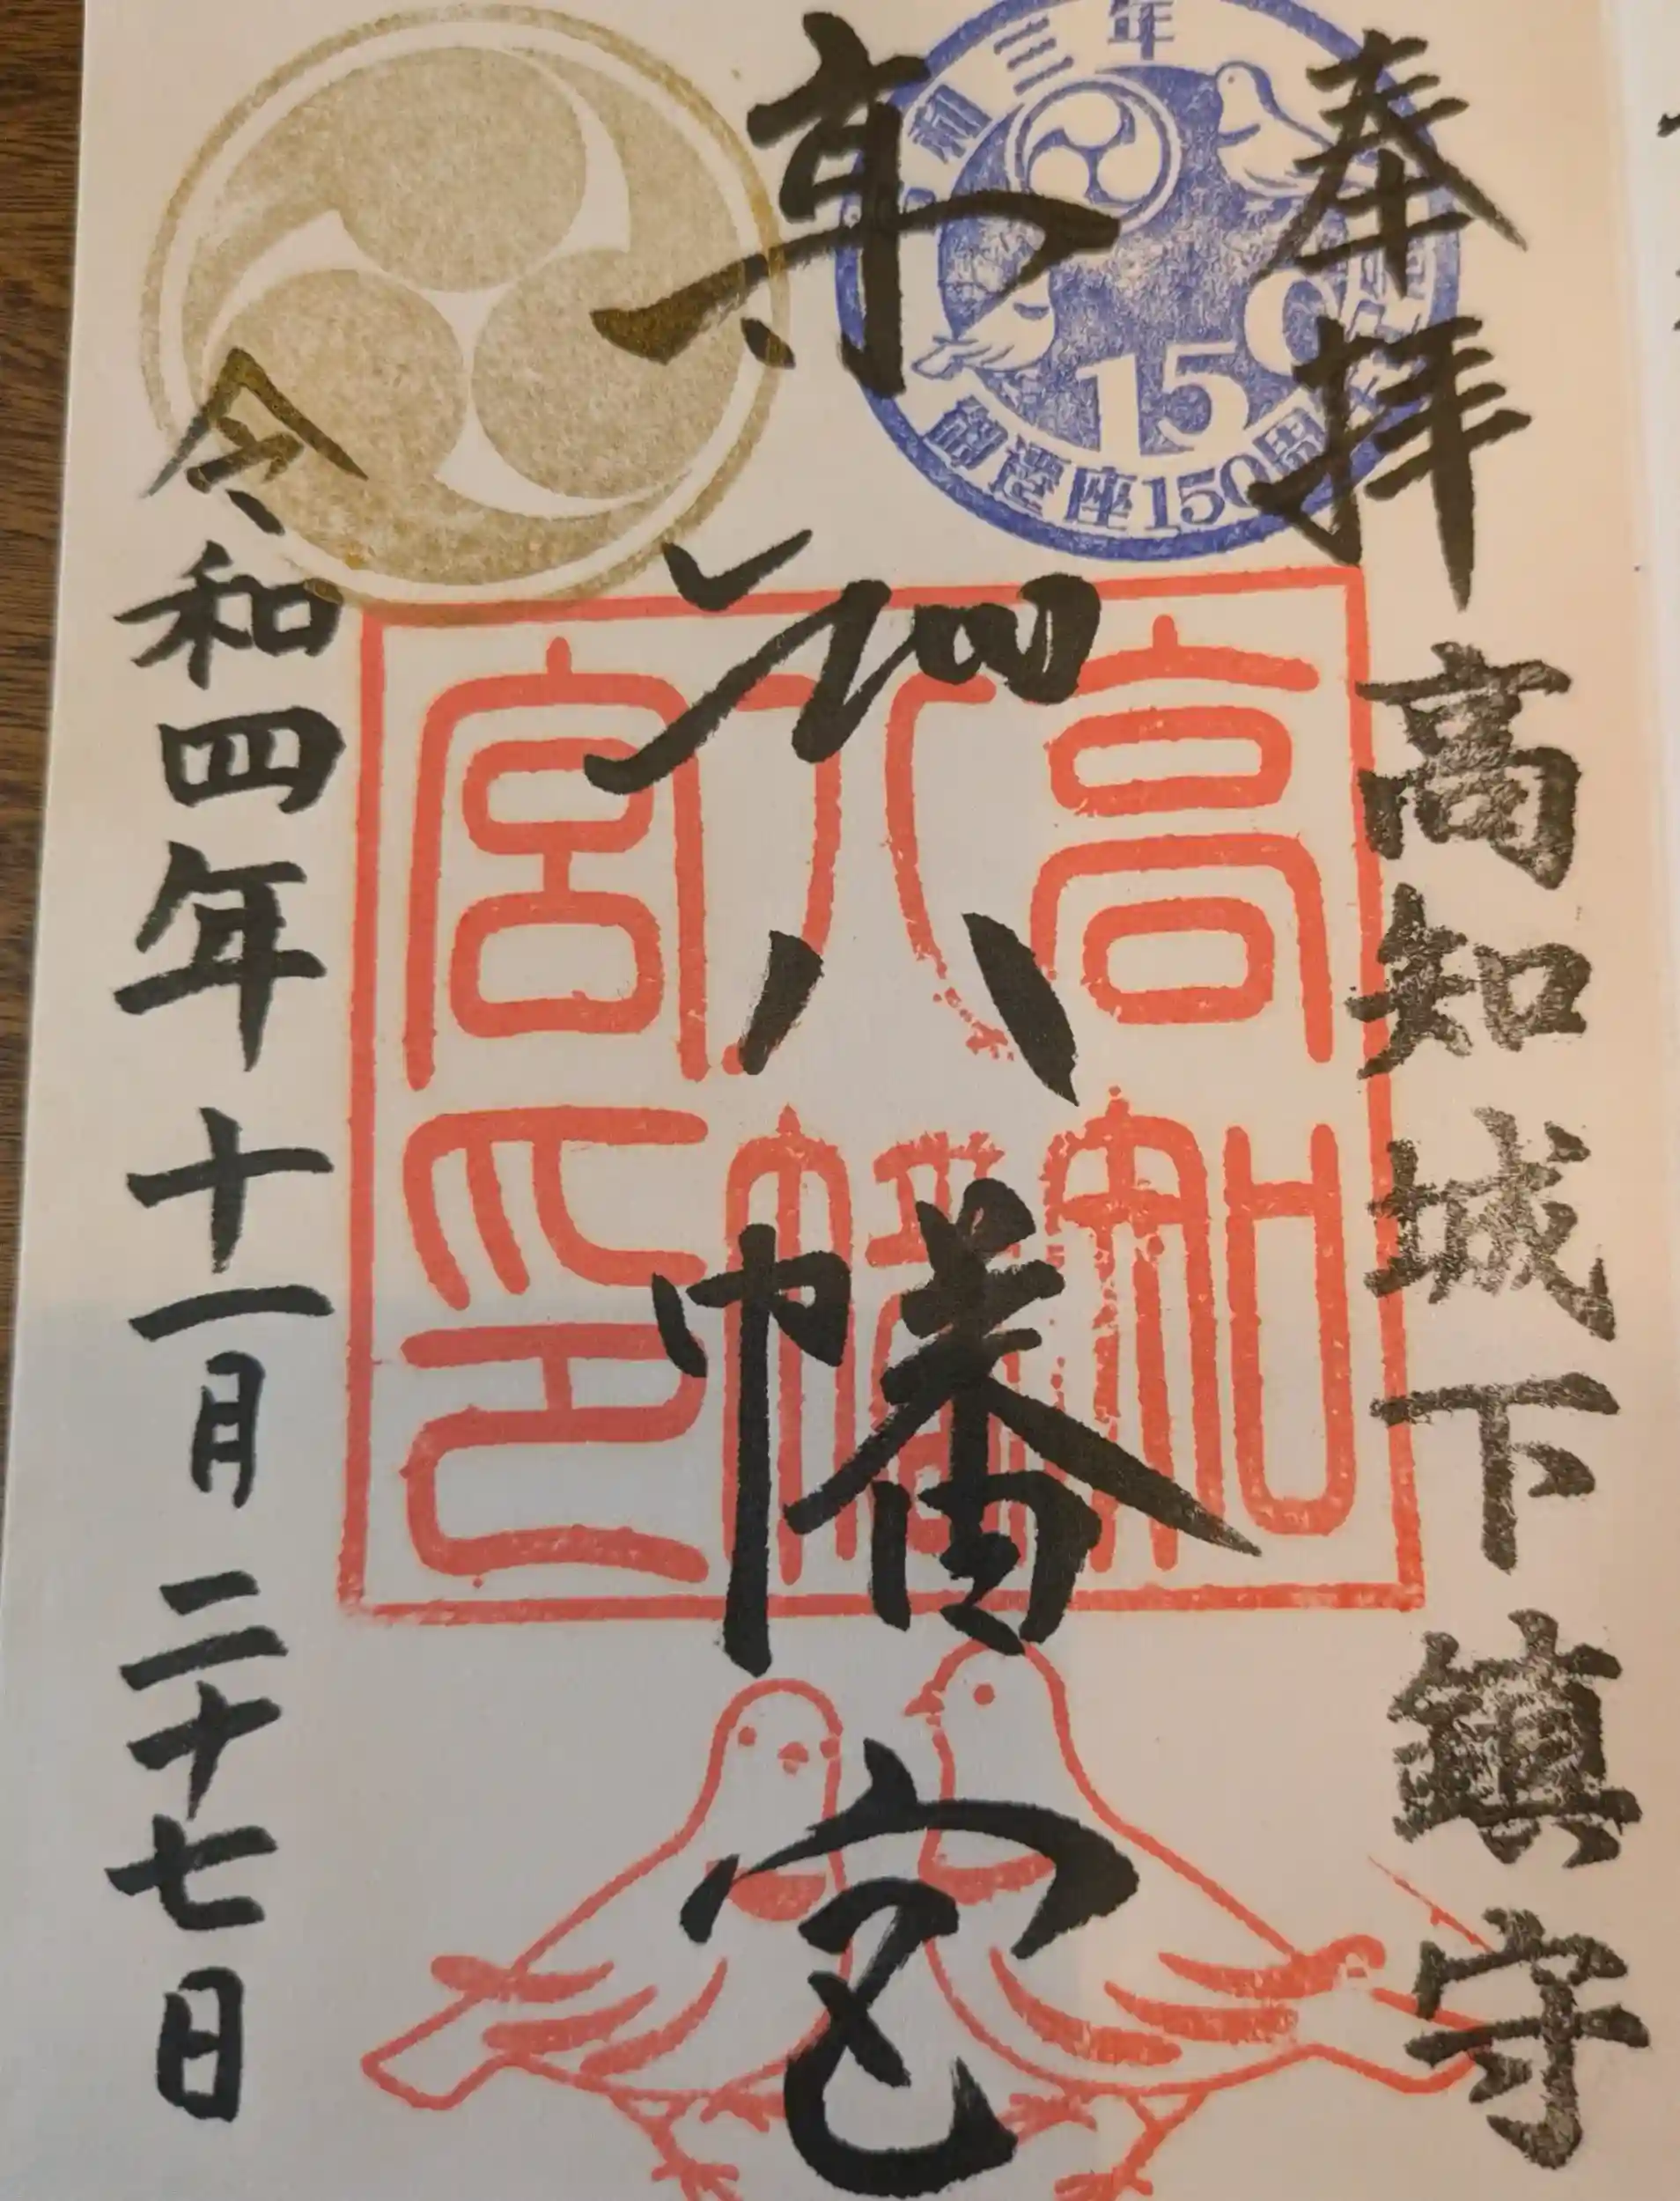 奉拝
高知城下鎮守
高知八幡宮
令和四年十一月二十七日
令和三年
150
御遷座150周年
高知八幡宮印